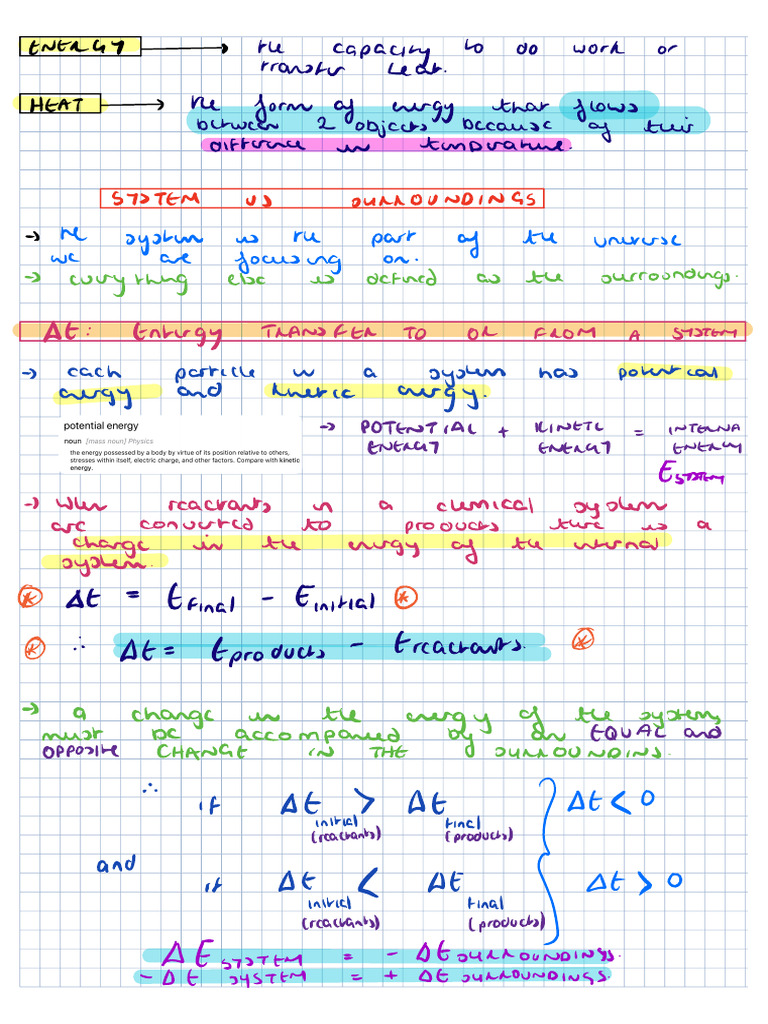 ENERGY → the capacity to do work or
transfer heat.
HEAT → the form of energy that flows
between 2 objects because of their
difference in temperature.
SYSTEM VS SURROUNDINGS
→ the system is the part of the universe
we are focusing on.
→ everything else is defined as the surroundings.
ΔE: Energy TRANSFER TO OR FROM A SYSTEM
→ each particle in a system has potential
energy and kinetic energy.
potential energy
noun [mass noun] Physics
the energy possessed by a body by virtue of its position relative to others,
stresses within itself, electric charge, and other factors. Compare with kinetic
energy.
→ POTENTIAL + KINETIC = INTERNA
ENERGY ENERGY ENERGY
E SYSTEM
→ When reactants in a chemical system
are converted to products there is a
change in the energy of the internal
system.
* ΔE = E final - E initial *
* ∴ ΔE = E products - E reactants. *
→ a change in the energy of the system,
must be accompanied by an EQUAL and
OPPOSITE CHANGE IN THE SURROUNDINS.
∴ if ΔE > ΔE } ΔE < 0
initial final
(reactants) (products)
and
if ΔE < ΔE } ΔE > 0
initial final
(reactants) (products)
ΔE SYSTEM = - ΔE SURROUNDINGS.
- ΔE SYSTEM = + ΔE SURROUNDINGS